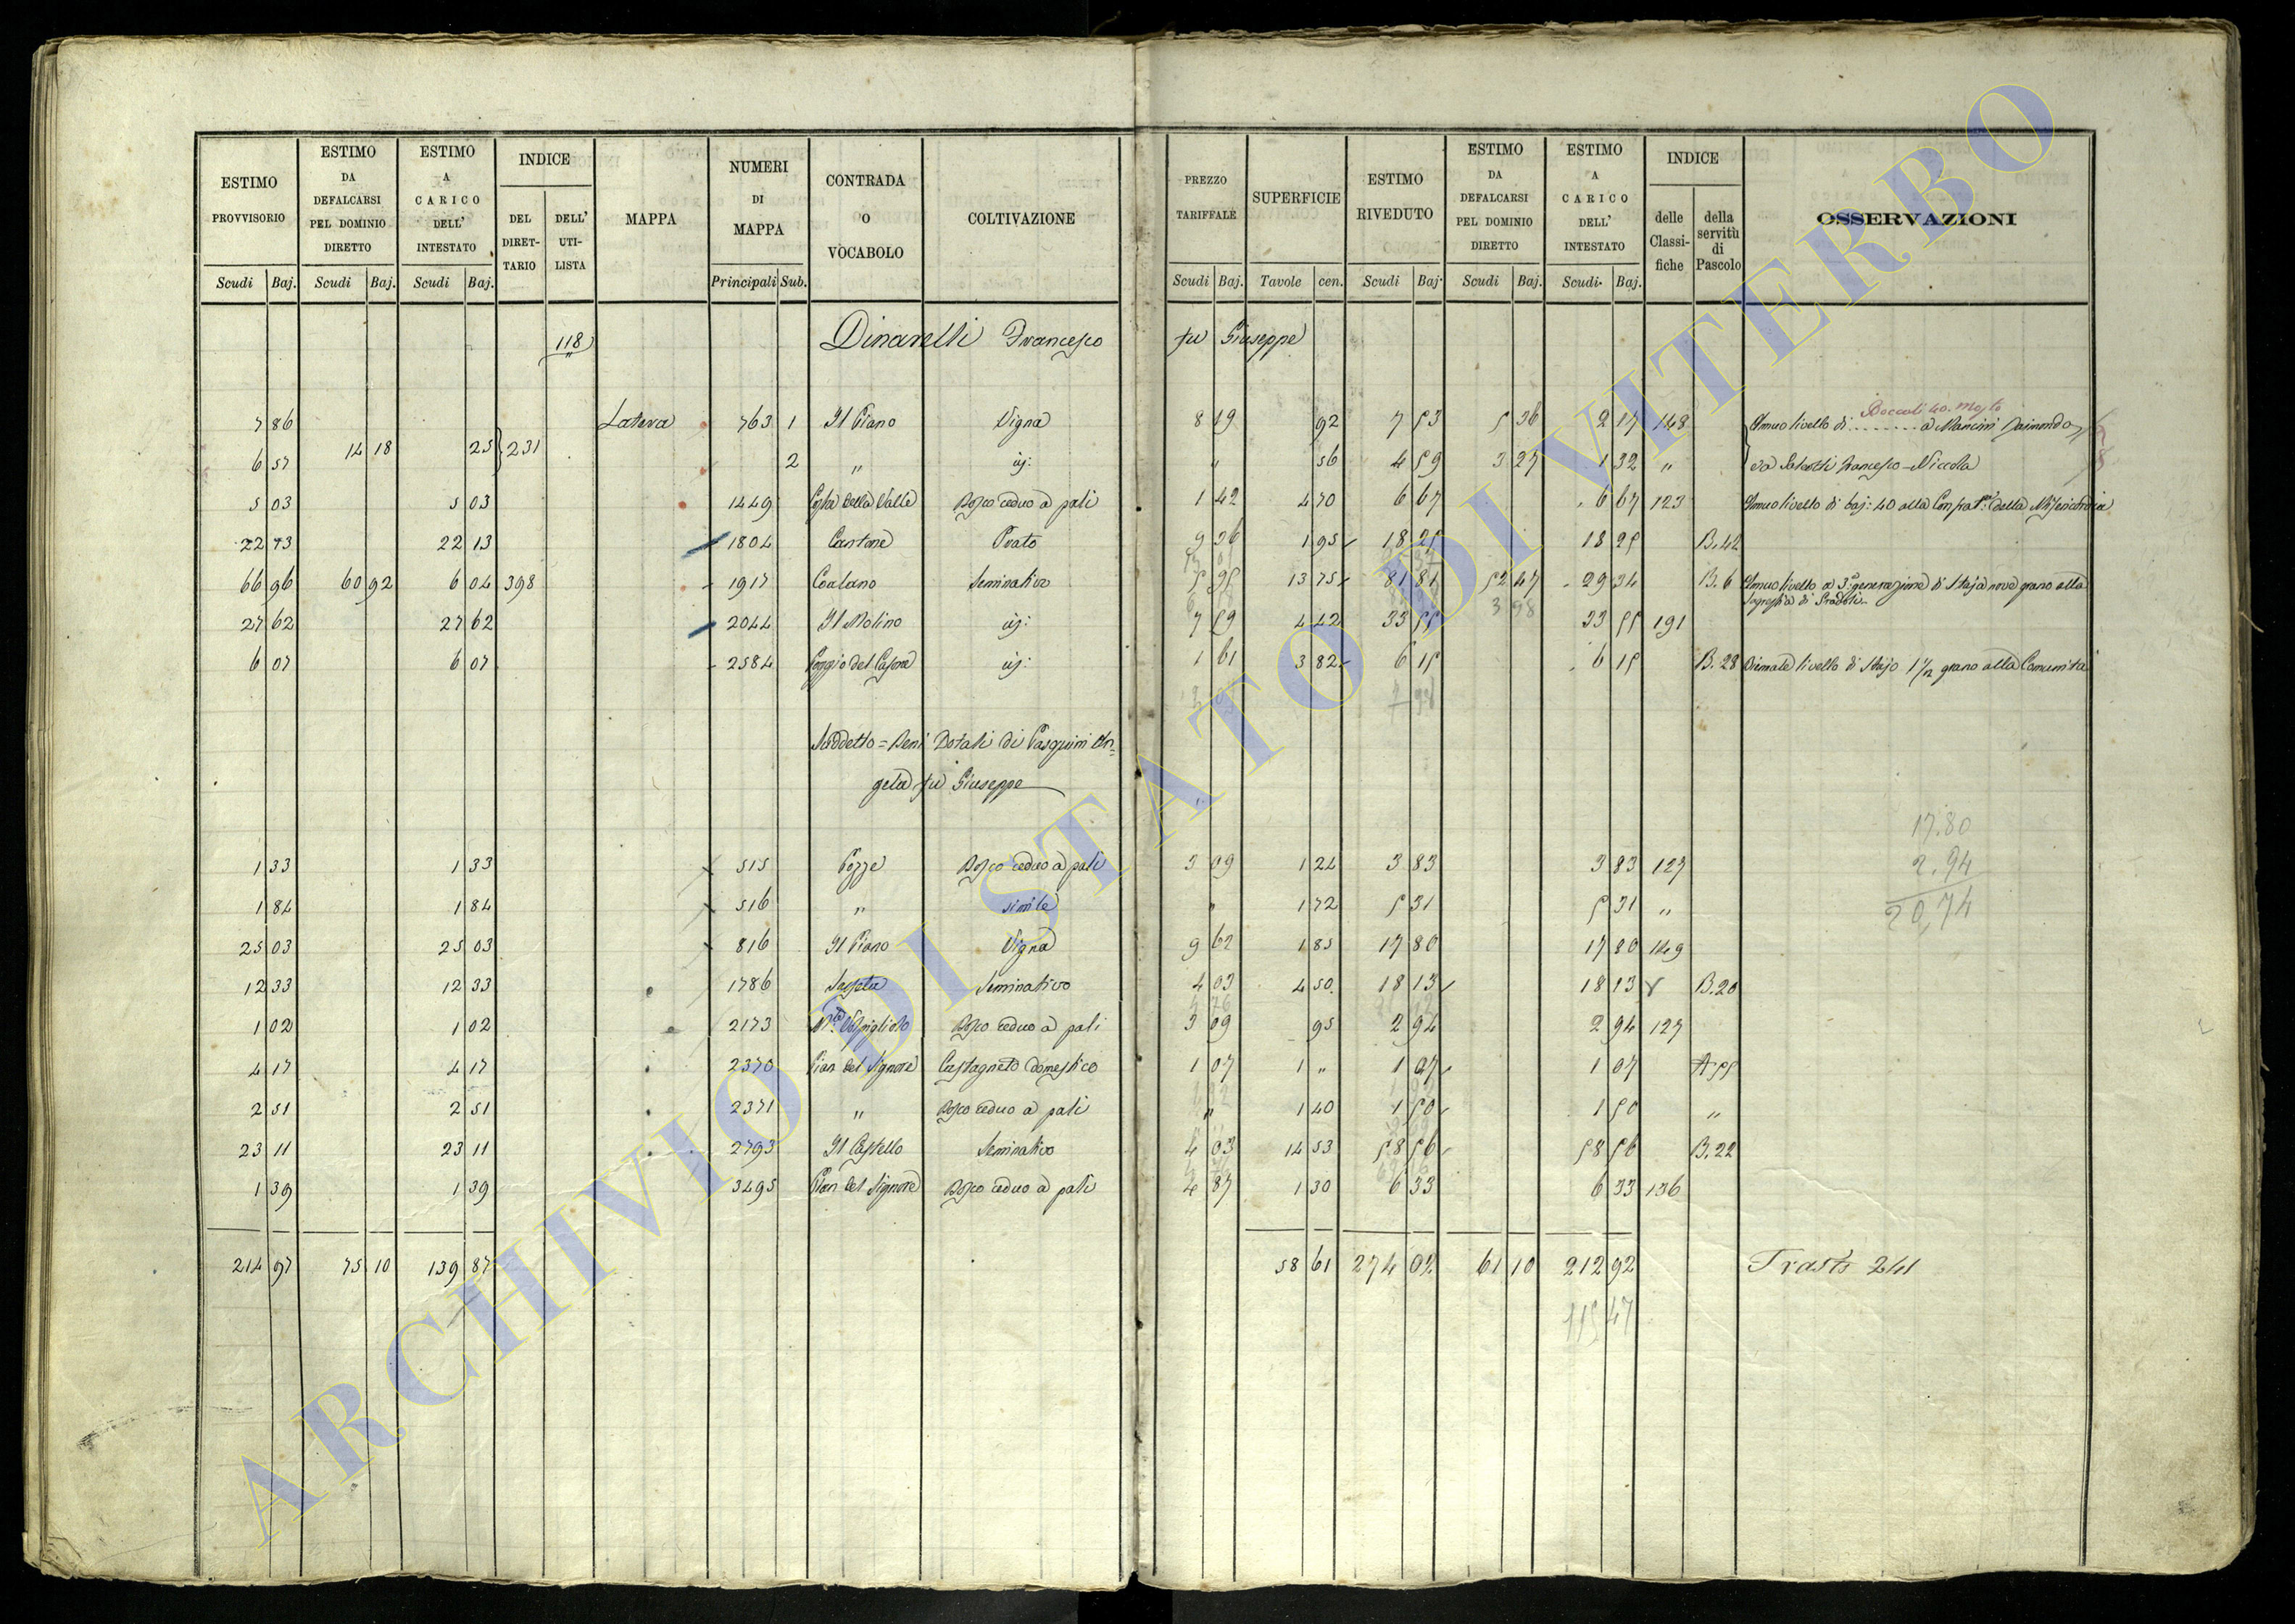 ESTIMO PROVVISORIO | ESTIMO DA DEFALCARSI PEL DOMINIO DIRETTO | ESTIMO A CARICO DELL' INTESTATO | INDICE | MAPPA | NUMERI DI MAPPA | CONTRADA O VOCABOLO | COLTIVAZIONE | PREZZO TARIFFALE | SUPERFICIE | ESTIMO RIVEDUTO | ESTIMO DA DEFALCARSI PEL DOMINIO DIRETTO | ESTIMO A CARICO DELL' INTESTATO | INDICE | OSSERVAZIONI
DEL DIRETTARIO | DELL' UTILISTA | delle Classifiche | della servitù di Pascolo
Scudi Baj. | Scudi Baj. | Scudi Baj. | Principali Sub. | Scudi Baj. | Tavole cen. | Scudi Baj. | Scudi Baj. | Scudi Baj.
118 Dinarelli Francesco fu Giuseppe
Boccali 40. Mosto
7 86 | Latera | 763 1 | Il Piano | Vigna | 8 19 | 92 | 7 53 | 5 36 | 2 17 | 148 | Annuo livello di ........ a Mancini Raimondo
14 18 | 25 | 231
6 57 | 2 | " | id: | " | 56 | 4 59 | 3 27 | 1 32 | " | Francesco - Niccola
5 03 | 5 03 | 1449 | Costa della Valle | Bosco ceduo a pali | 1 42 | 4 70 | 6 67 | 6 67 | 123 | Annuo livello di baj: 40 alla Confrat: della Misericordia
22 13 | 22 13 | 1804 | Cantone | Prato | 9 36 | 1 95 | 18 25 | 18 25 | B. 42
66 96 | 60 92 | 6 04 | 398 | 1917 | Seminativo | 5 95 | 13 75 | 81 81 | 52 47 | 29 34 | B. 6 | Annuo livello a 3a generazione di Staja nove grano alla
Sagrestia di Gradoli
3 98
27 62 | 27 62 | 2044 | Il Molino | id: | 7 59 | 4 42 | 33 55 | 33 55 | 191
6 07 | 6 07 | 2584 | Poggio del | id: | 1 61 | 3 82 | 6 15 | 6 15 | B. 28 | livello di Stajo 1 1/2 grano alla Comunità
Suddetto = Beni Dotali di Pasquini An=
gela fu Giuseppe
17.80
2.94
20,74
1 33 | 1 33 | 515 | Pozze | Bosco ceduo a pali | 3 09 | 1 24 | 3 83 | 3 83 | 127
1 84 | 1 84 | 516 | " | simile | " | 1 72 | 5 31 | 5 31 | "
25 03 | 25 03 | 816 | Il Piano | Vigna | 9 62 | 1 85 | 17 80 | 17 80 | 149
12 33 | 12 33 | 1786 | Seminativo | 4 03 | 4 50 | 18 13 | 18 13 | B. 20
1 02 | 1 02 | 2173 | Bosco ceduo a pali | 3 09 | 95 | 2 94 | 2 94 | 127
4 17 | 4 17 | 2370 | Pian del Signore | Castagneto domestico | 1 07 | 1 " | 1 07 | 1 07 | A 55
2 51 | 2 51 | 2371 | " | Bosco ceduo a pali | " | 1 40 | 1 50 | 1 50 | "
23 11 | 23 11 | 2793 | Il Castello | Seminativo | 4 03 | 14 53 | 58 56 | 58 56 | B. 22
1 39 | 1 39 | 3495 | Pian del Signore | Bosco ceduo a pali | 4 87 | 1 30 | 6 33 | 6 33 | 136
214 97 | 75 10 | 139 87 | 58 61 | 274 02 | 61 10 | 212 92 | Trasto 241
115 47
ARCHIVIO DI STATO DI VITERBO